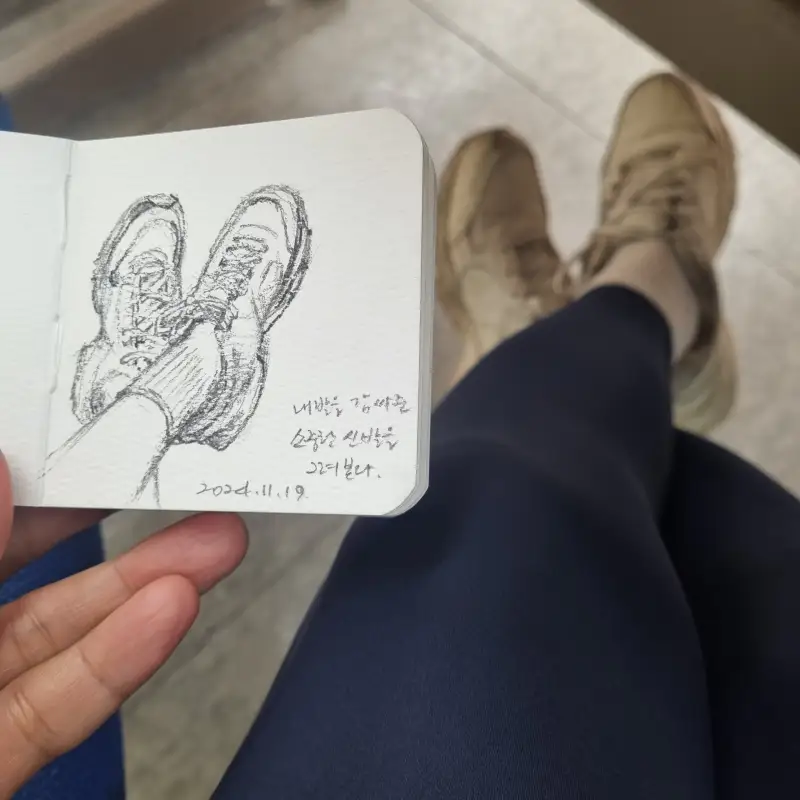 내 발을 감싸준
소중한 신발을
그려본다.
2024.11.19